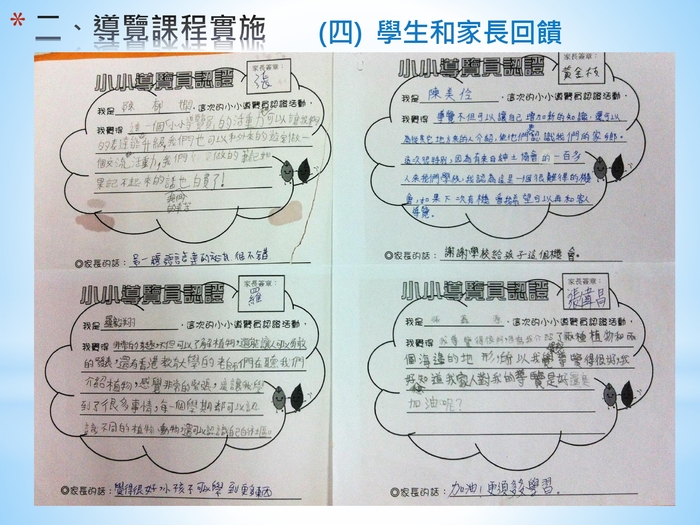 * 二、導覽課程實施 (四) 學生和家長回饋
小小導覽員認證
家長簽章:
張
我是 ,這次的小小導覽員認證活動,
我覺得 這一個「小小導覽員」的活動可以讓我們
的表達能力升級,我們也可以和外來的遊客做一
個交流活動,我們 做的筆記如
果記不起來的話也白費了!
◎家長的話: 是一種語言專的 很不錯
小小導覽員認證
家長簽章:
黃金枝
我是 陳美伶 ,這次的小小導覽員認證活動,
我覺得 導覽不但可以讓自己增加新的知識,還可以
為從其它地方來的人介紹,使他們認識我們的家鄉。
這次很特別,因為有來自紳士協會的一百多
人來我們學校,我認為這是一個很難得的機
會,如果下次有機會 希望可以再和家人
導覽。
◎家長的話: 謝謝學校給孩子這個機會。
小小導覽員認證
家長簽章:
羅
我是 ,這次的小小導覽員認證活動,
我覺得 非常的 但可以了解植物,還能讓人可以有教
的發展,還有香港教大學的老師們在聽我們
介紹植物,感覺非常的緊張,這讓我學
到了很多事情,每一個學期都可以認
識不同的植物、動物,還可以認識自己的社區。
◎家長的話: 覺得很好,小孩子可以學到更多東西
小小導覽員認證
家長簽章:
張偉昌
我是 ,這次的小小導覽員認證活動,
我覺得 我導覽得很好,因為我介紹了兩種植物和兩
個海邊的地形,所以我 導覽得很好,我
好想知道我家人對我的導覽是好
加油呢?
◎家長的話: 加油!更須多學習。